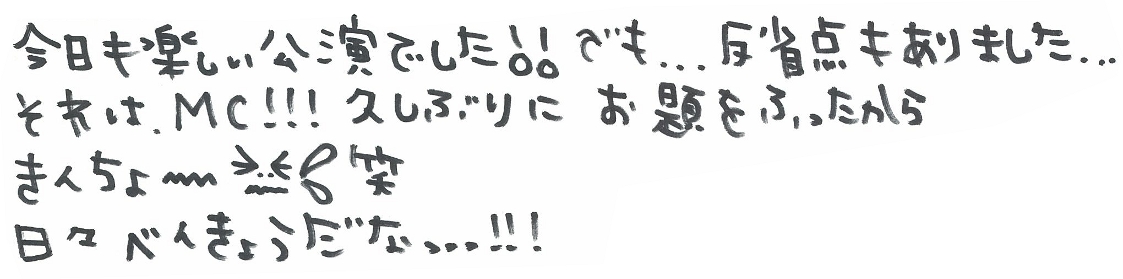 今日も楽しい公演でした!! でも... 反省点もありました...
それは、MC!!! 久しぶりに お題をふったから
きんちょ〰 >.<笑
日々べんきょうだなっ...!!!